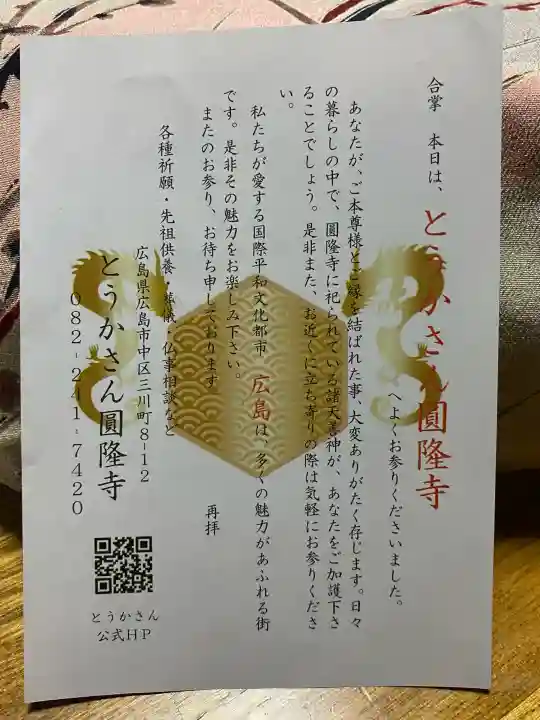 合掌　本日は、
とうかさん圓隆寺
へよくお参りくださいました。
あなたが、ご本尊様とご縁を結ばれた事、大変ありがたく存じます。日々
の暮らしの中で、圓隆寺に祀られている諸天善神が、あなたをご加護下さ
ることでしょう。是非また、お近くに立ち寄りの際は気軽にお参りくださ
い。
私たちが愛する国際平和文化都市　広島は、多くの魅力があふれる街
です。是非その魅力をお楽しみ下さい。
またのお参り、お待ち申しております。
再拝
各種祈願・先祖供養・葬儀・仏事相談など
広島県広島市中区三川町8-12
とうかさん圓隆寺
082-241-7420
とうかさん
公式HP